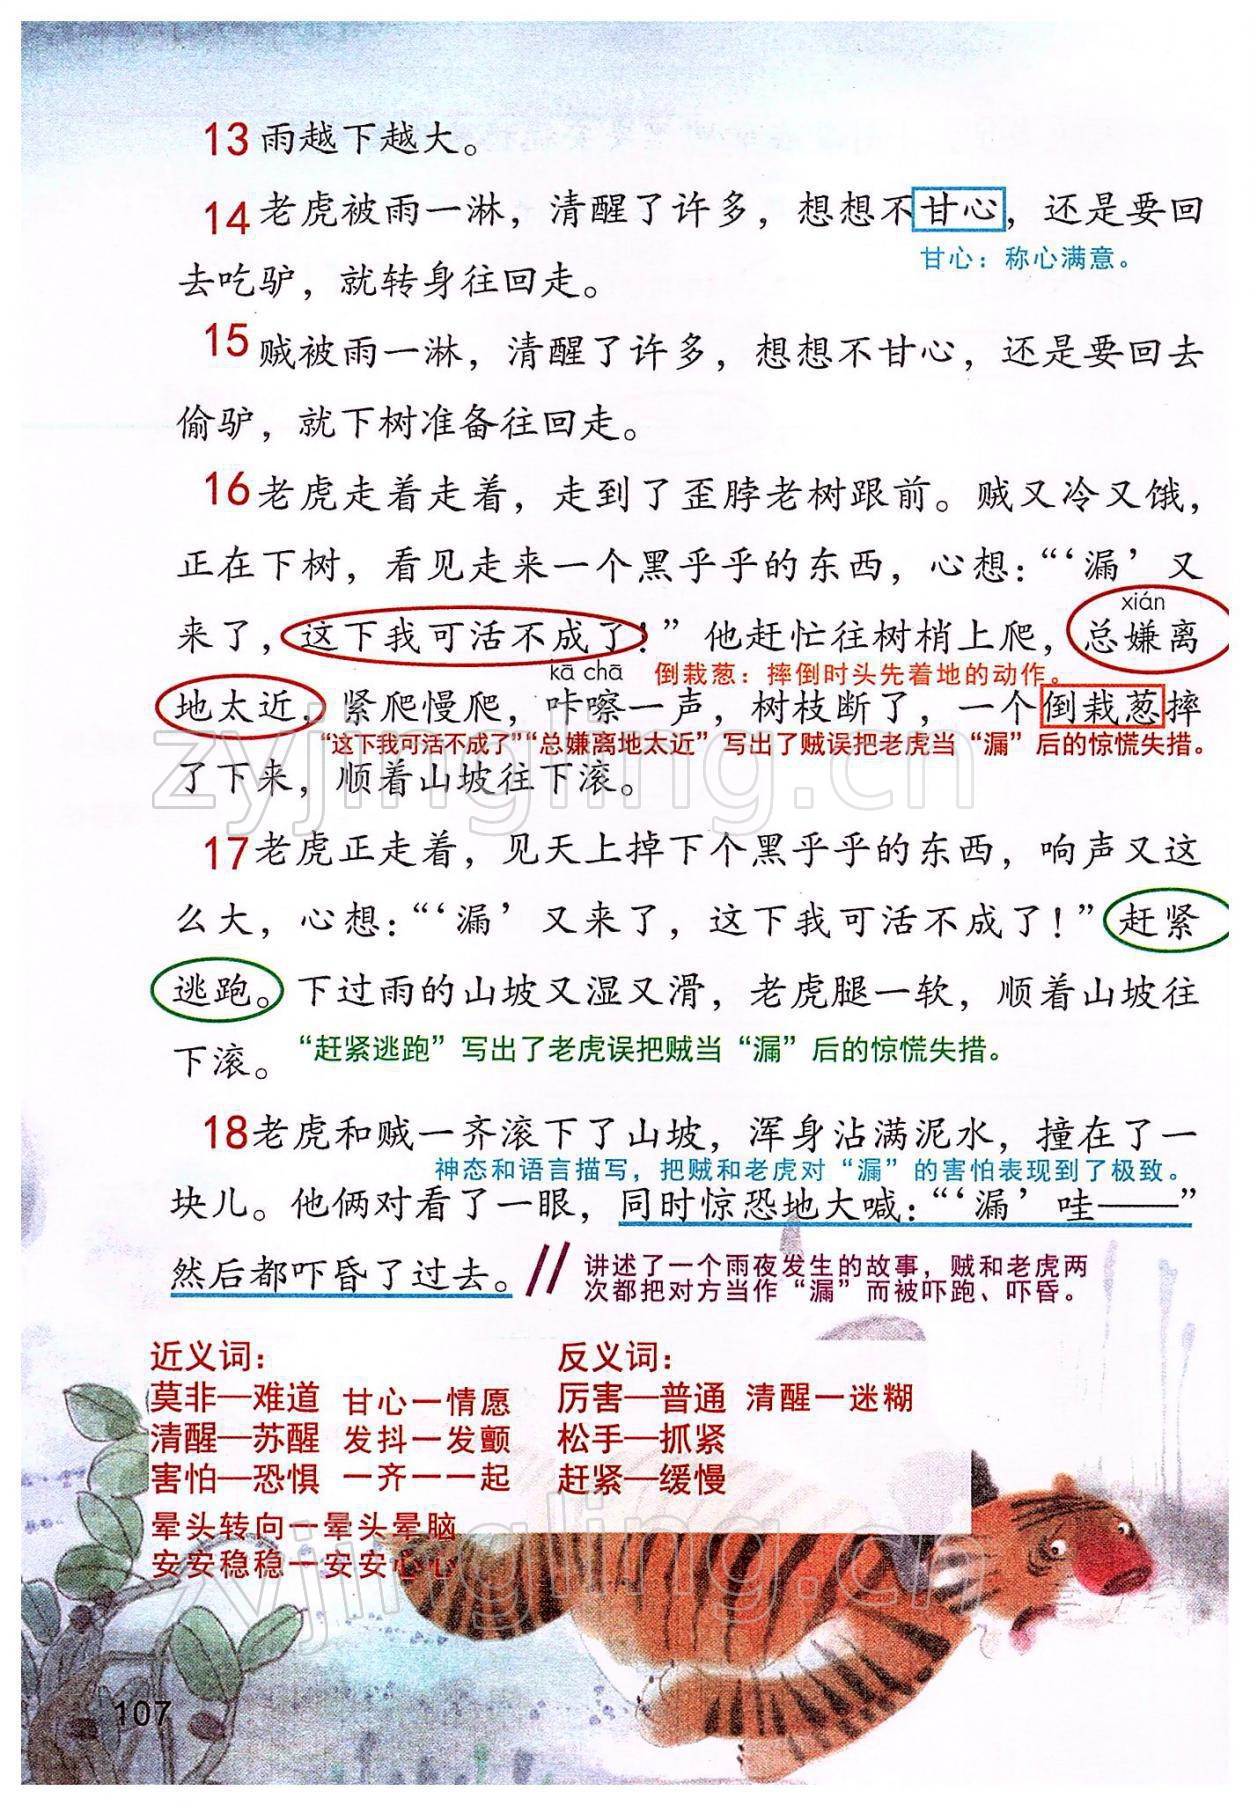 13 雨越下越大。
14 老虎被雨一淋，清醒了许多，想想不甘心，还是要回
甘心：称心满意。
去吃驴，就转身往回走。
15 贼被雨一淋，清醒了许多，想想不甘心，还是要回去
偷驴，就下树准备往回走。
16 老虎走着走着，走到了歪脖老树跟前。贼又冷又饿，
正在下树，看见走来一个黑乎乎的东西，心想：“‘漏’又
xián
来了，这下我可活不成了！”他赶忙往树梢上爬，总嫌离
kā chā
倒栽葱：摔倒时头先着地的动作。
地太近，紧爬慢爬，咔嚓一声，树枝断了，一个倒栽葱摔
“这下我可活不成了”“总嫌离地太近”写出了贼误把老虎当“漏”后的惊慌失措。
了下来，顺着山坡往下滚。
zyjingling.cn
17 老虎正走着，见天上掉下个黑乎乎的东西，响声又这
么大，心想：“‘漏’又来了，这下我可活不成了！”赶紧
逃跑。下过雨的山坡又湿又滑，老虎腿一软，顺着山坡往
下滚。
“赶紧逃跑”写出了老虎误把贼当“漏”后的惊慌失措。
18 老虎和贼一齐滚下了山坡，浑身沾满泥水，撞在了一
神态和语言描写，把贼和老虎对“漏”的害怕表现到了极致。
块儿。他俩对看了一眼，同时惊恐地大喊：“‘漏’哇——”
然后都吓昏了过去。//
讲述了一个雨夜发生的故事，贼和老虎两
次都把对方当作“漏”而被吓跑、吓昏。
近义词：
莫非—难道 甘心—情愿
清醒—苏醒 发抖—发颤
害怕—恐惧 一齐—一起
晕头转向—晕头晕脑
安安稳稳—安安心心
反义词：
厉害—普通 清醒—迷糊
松手—抓紧
赶紧—缓慢
zyjingling.cn
107